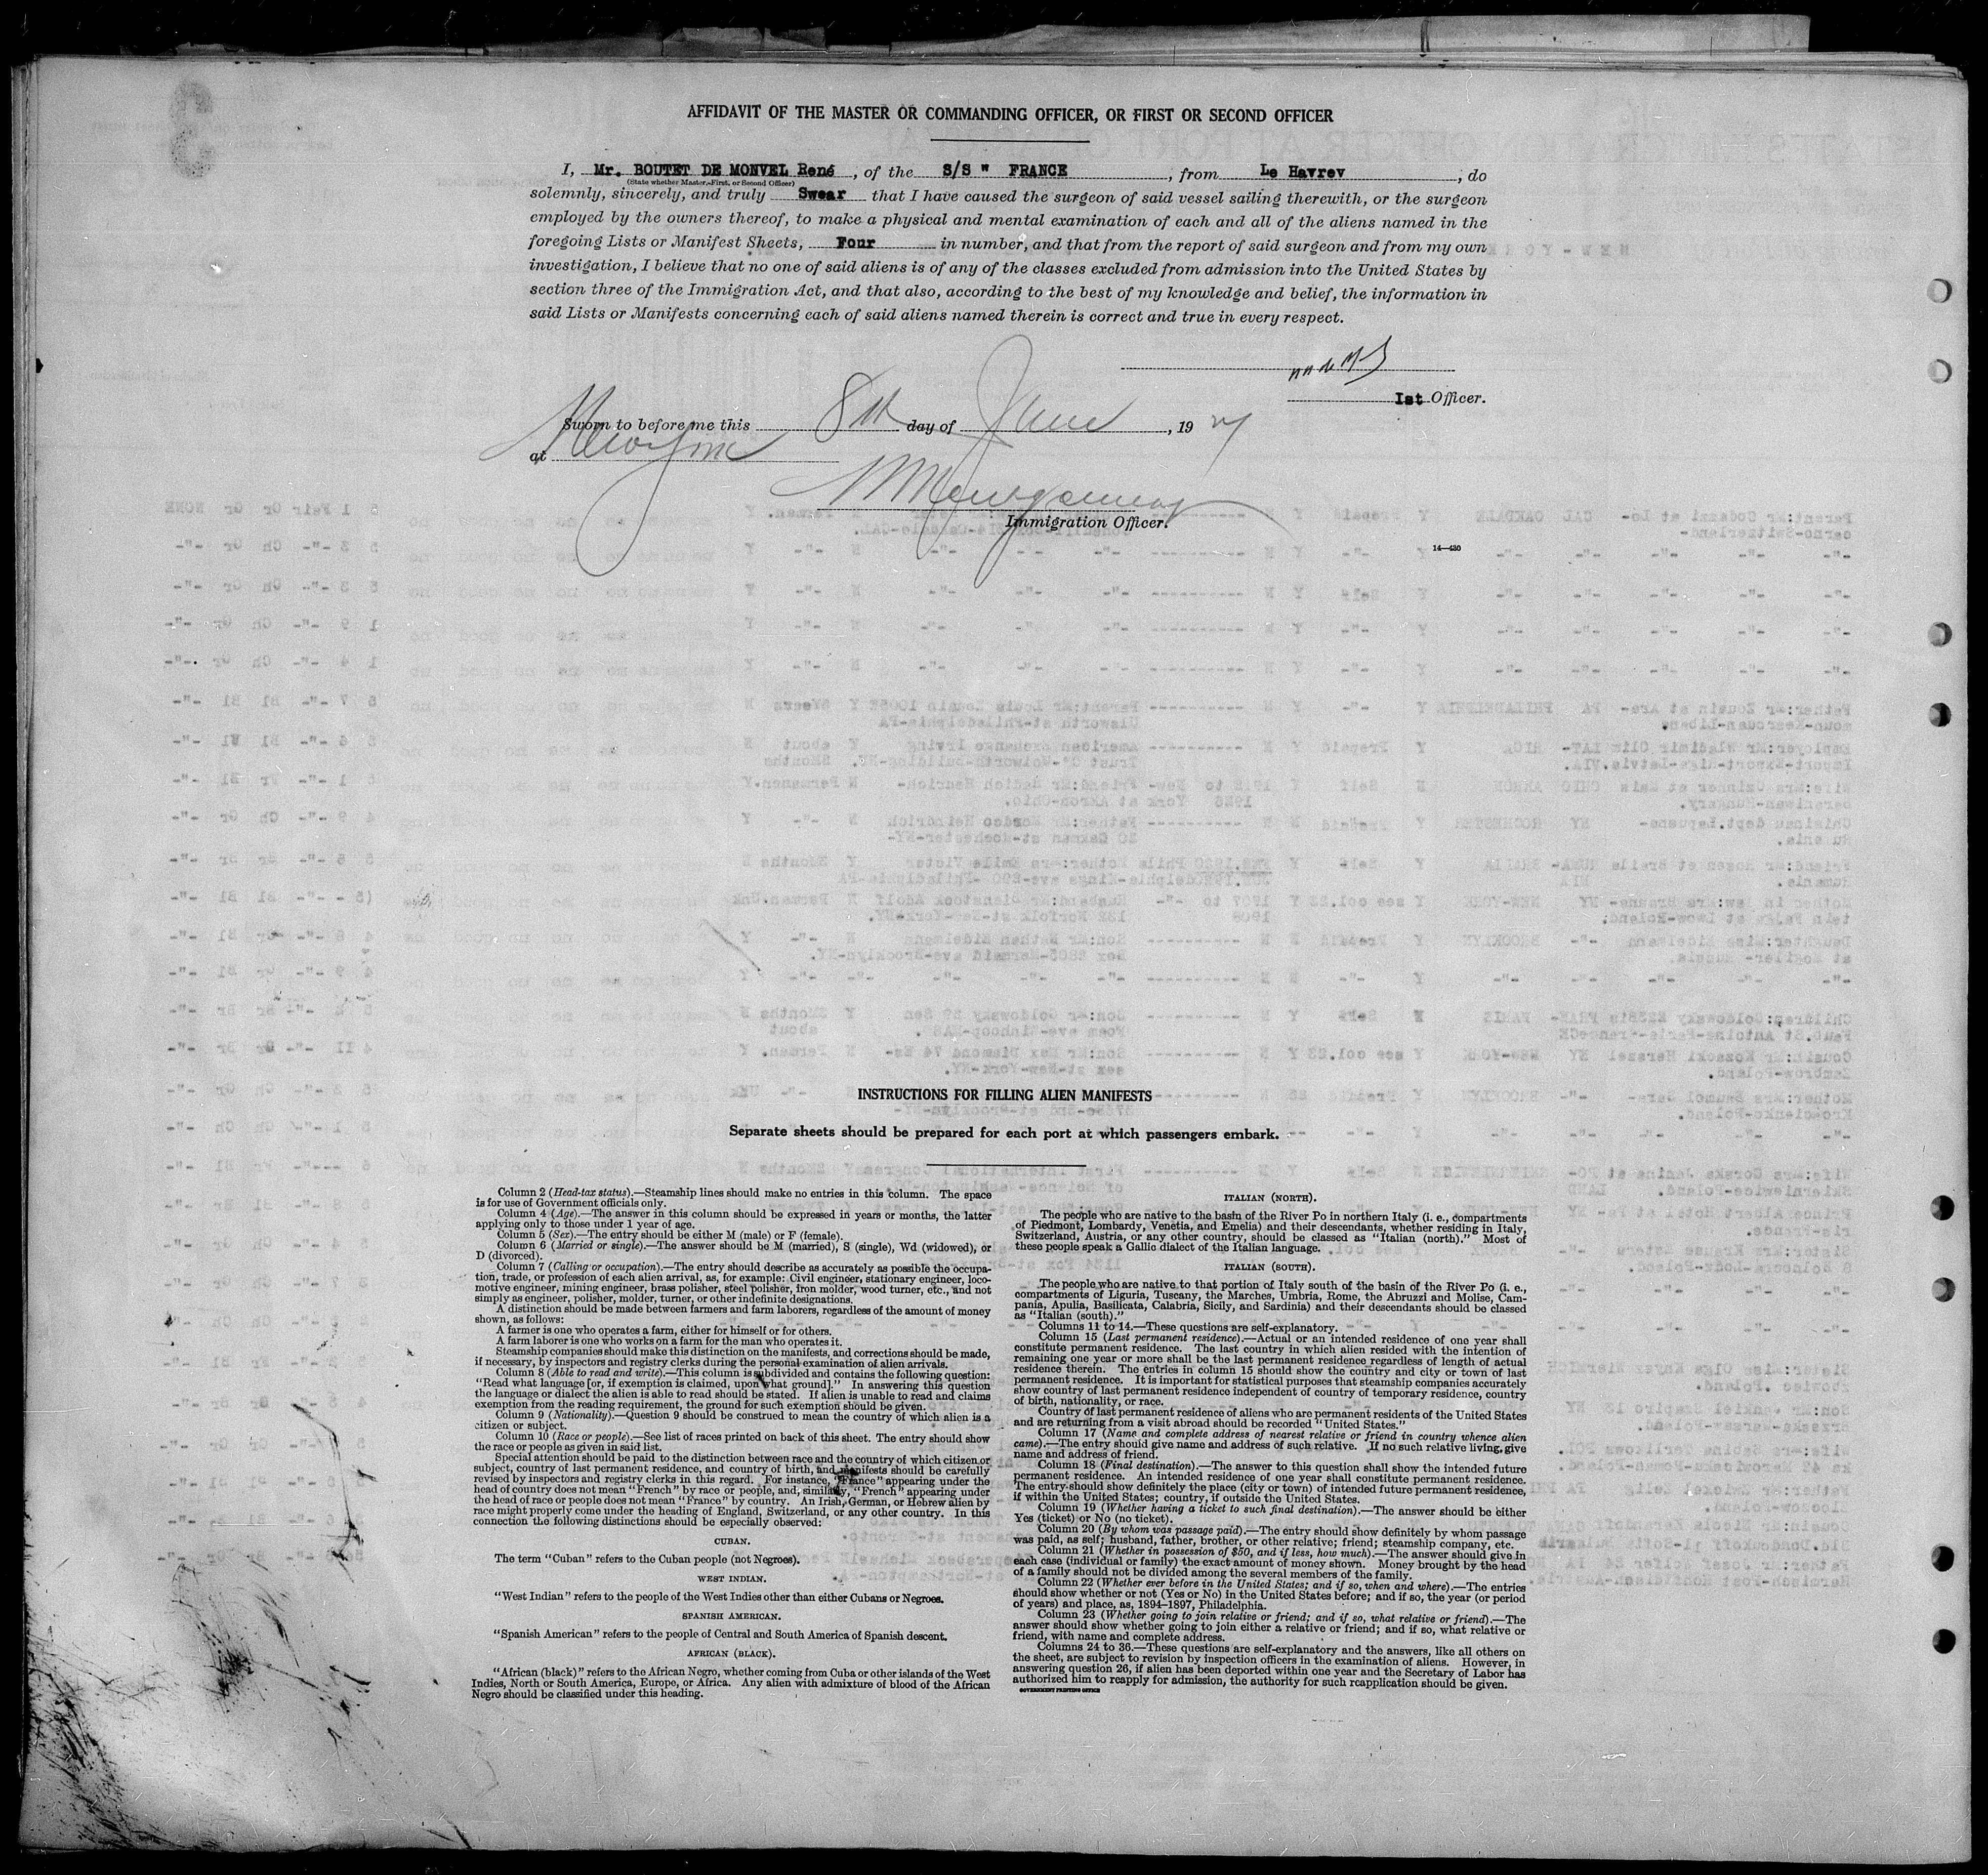 AFFIDAVIT OF THE MASTER OR COMMANDING OFFICER, OR FIRST OR SECOND OFFICER
I, Mr. BOUTET DE MONVEL René, of the S/S " FRANCE, from Le Havrev, do
(State whether Master, First, or Second Officer)
solemnly, sincerely, and truly Swear that I have caused the surgeon of said vessel sailing therewith, or the surgeon
employed by the owners thereof, to make a physical and mental examination of each and all of the aliens named in the
foregoing Lists or Manifest Sheets, Four in number, and that from the report of said surgeon and from my own
investigation, I believe that no one of said aliens is of any of the classes excluded from admission into the United States by
section three of the Immigration Act, and that also, according to the best of my knowledge and belief, the information in
said Lists or Manifests concerning each of said aliens named therein is correct and true in every respect.
Ist Officer.
Sworn to before me this 8th day of June, 1927
at New York
Montgomery
Immigration Officer.
14—430
INSTRUCTIONS FOR FILLING ALIEN MANIFESTS
Separate sheets should be prepared for each port at which passengers embark.
Column 2 (Head-tax status).—Steamship lines should make no entries in this column. The space
is for use of Government officials only.
Column 4 (Age).—The answer in this column should be expressed in years or months, the latter
applying only to those under 1 year of age.
Column 5 (Sex).—The entry should be either M (male) or F (female).
Column 6 (Married or single).—The answer should be M (married), S (single), Wd (widowed), or
D (divorced).
Column 7 (Calling or occupation).—The entry should describe as accurately as possible the occupa-
tion, trade, or profession of each alien arrival, as, for example: Civil engineer, stationary engineer, loco-
motive engineer, mining engineer, brass polisher, steel polisher, iron molder, wood turner, etc., and not
simply as engineer, polisher, molder, turner, or other indefinite designations.
A distinction should be made between farmers and farm laborers, regardless of the amount of money
shown, as follows:
A farmer is one who operates a farm, either for himself or for others.
A farm laborer is one who works on a farm for the man who operates it.
Steamship companies should make this distinction on the manifests, and corrections should be made,
if necessary, by inspectors and registry clerks during the personal examination of alien arrivals.
Column 8 (Able to read and write).—This column is subdivided and contains the following question:
"Read what language [or, if exemption is claimed, upon what ground]." In answering this question
the language or dialect the alien is able to read should be stated. If alien is unable to read and claims
exemption from the reading requirement, the ground for such exemption should be given.
Column 9 (Nationality).—Question 9 should be construed to mean the country of which alien is a
citizen or subject.
Column 10 (Race or people).—See list of races printed on back of this sheet. The entry should show
the race or people as given in said list.
Special attention should be paid to the distinction between race and the country of which citizen or
subject, country of last permanent residence, and country of birth, and manifests should be carefully
revised by inspectors and registry clerks in this regard. For instance, "France" appearing under the
head of country does not mean "French" by race or people, and, similarly, "French" appearing under
the head of race or people does not mean "France" by country. An Irish, German, or Hebrew alien by
race might properly come under the heading of England, Switzerland, or any other country. In this
connection the following distinctions should be especially observed:
CUBAN.
The term "Cuban" refers to the Cuban people (not Negroes).
WEST INDIAN.
"West Indian" refers to the people of the West Indies other than either Cubans or Negroes.
SPANISH AMERICAN.
"Spanish American" refers to the people of Central and South America of Spanish descent.
AFRICAN (BLACK).
"African (black)" refers to the African Negro, whether coming from Cuba or other islands of the West
Indies, North or South America, Europe, or Africa. Any alien with admixture of blood of the African
Negro should be classified under this heading.
ITALIAN (NORTH).
The people who are native to the basin of the River Po in northern Italy (i. e., compartments
of Piedmont, Lombardy, Venetia, and Emelia) and their descendants, whether residing in Italy,
Switzerland, Austria, or any other country, should be classed as "Italian (north)." Most of
these people speak a Gallic dialect of the Italian language.
ITALIAN (SOUTH).
The people who are native to that portion of Italy south of the basin of the River Po (i. e.,
compartments of Liguria, Tuscany, the Marches, Umbria, Rome, the Abruzzi and Molise, Cam-
pania, Apulia, Basilicata, Calabria, Sicily, and Sardinia) and their descendants should be classed
as "Italian (south)."
Columns 11 to 14.—These questions are self-explanatory.
Column 15 (Last permanent residence).—Actual or an intended residence of one year shall
constitute permanent residence. The last country in which alien resided with the intention of
remaining one year or more shall be the last permanent residence regardless of length of actual
residence therein. The entries in column 15 should show the country and city or town of last
permanent residence. It is important for statistical purposes that steamship companies accurately
show country of last permanent residence independent of country of temporary residence, country
of birth, nationality, or race.
Country of last permanent residence of aliens who are permanent residents of the United States
and are returning from a visit abroad should be recorded "United States."
Column 17 (Name and complete address of nearest relative or friend in country whence alien
came).—The entry should give name and address of such relative. If no such relative living, give
name and address of friend.
Column 18 (Final destination).—The answer to this question shall show the intended future
permanent residence. An intended residence of one year shall constitute permanent residence.
The entry should show definitely the place (city or town) of intended future permanent residence,
if within the United States; country, if outside the United States.
Column 19 (Whether having a ticket to such final destination).—The answer should be either
Yes (ticket) or No (no ticket).
Column 20 (By whom was passage paid).—The entry should show definitely by whom passage
was paid, as self; husband, father, brother, or other relative; friend; steamship company, etc.
Column 21 (Whether in possession of $50, and if less, how much).—The answer should give in
each case (individual or family) the exact amount of money shown. Money brought by the head
of a family should not be divided among the several members of the family.
Column 22 (Whether ever before in the United States; and if so, when and where).—The entries
should show whether or not (Yes or No) in the United States before; and if so, the year (or period
of years) and place, as, 1894–1897, Philadelphia.
Column 23 (Whether going to join relative or friend; and if so, what relative or friend).—The
answer should show whether going to join either a relative or friend; and if so, what relative or
friend, with name and complete address.
Columns 24 to 36.—These questions are self-explanatory and the answers, like all others on
the sheet, are subject to revision by inspection officers in the examination of aliens. However, in
answering question 26, if alien has been deported within one year and the Secretary of Labor has
authorized him to reapply for admission, the authority for such reapplication should be given.
GOVERNMENT PRINTING OFFICE